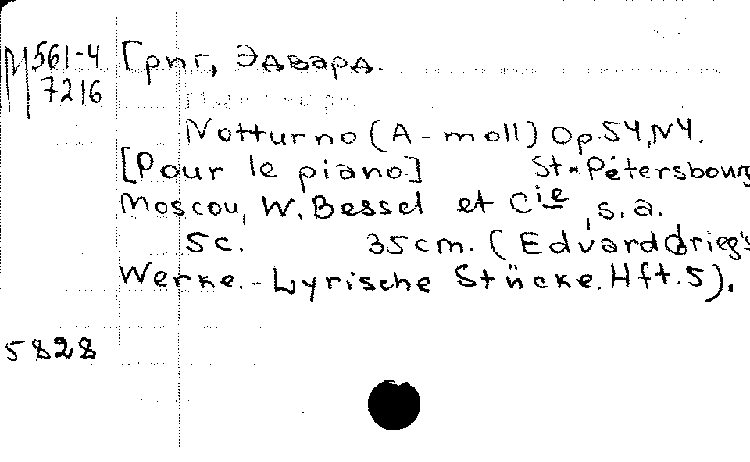 М 561-4 Григ, Эдвард.
7216
Notturno (A-moll) Op.54, N4.
[Pour le piano] St-Pétersbourg
Moscou, W. Bessel et Cie, s.a.
5c. 35cm. (Edvard Grieg's
Werke. - Lyrische Stücke. Hft. 5).
5828